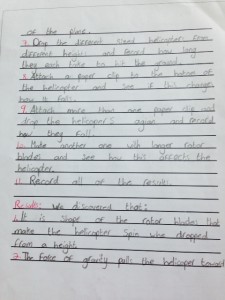 of the plane.
7. Drop the different sized helicopters from
different heights and record how long
they each take to hit the ground.
8. Attach a paper clip to the bottom of
the helicopter and see if this changes
how it falls.
9. Attach more than one paper clip and
drop the helicopters again and record
how they fall.
10. Make another one with longer rotor
blades and see how this affects the
helicopter.
11. Record all of the results.
Results: We discovered that:
1. It is shape of the rotor blades that
make the helicopter spin whe dropped
from a height.
2. The force of gravity pulls the helicoper toward